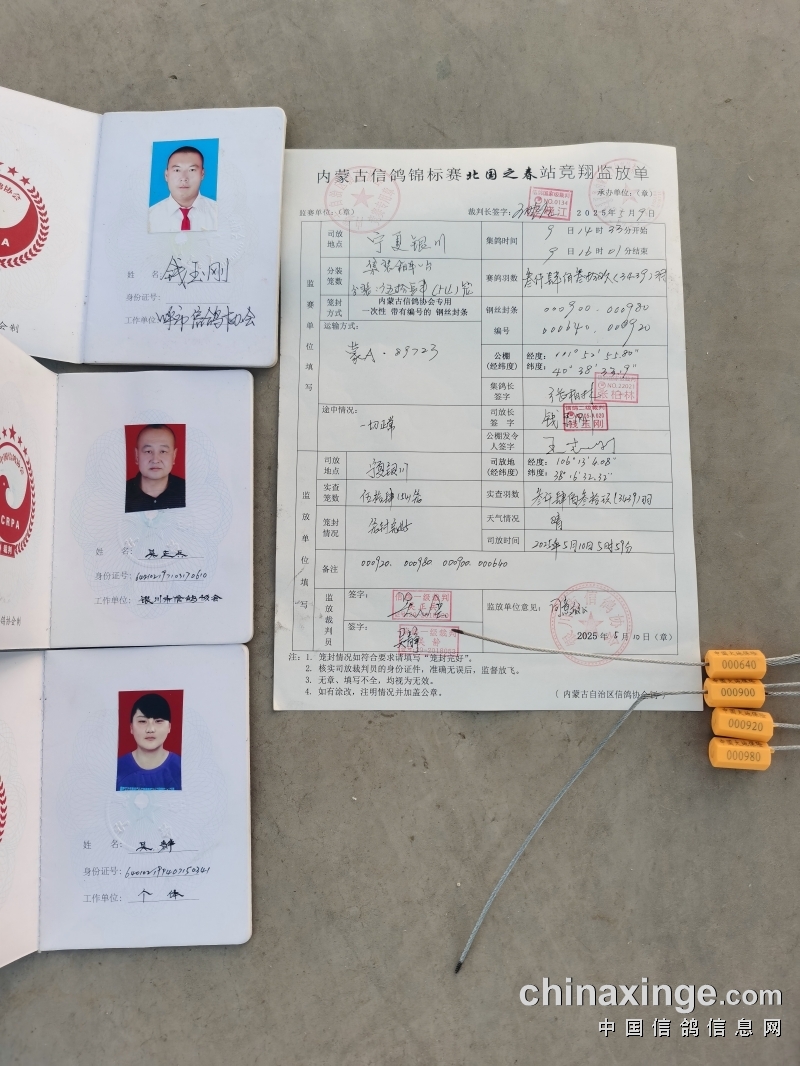 内蒙古信鸽锦标赛北国之春站竞翔监放单
承办单位:(章)
监赛单位:(章)
裁判长签字:
2025年5月9日
监赛单位填写
司放地点
宁夏银川
集鸽时间
9日14时33分开始
9日16时01分结束
分装笼数
赛鸽羽数
(3439)羽
笼封方式
内蒙古信鸽协会专用
一次性 带有编号的 钢丝封条
钢丝封条
编号
000900. 000980
000640. 000920
运输方式:
蒙A·89723
公棚
(经纬度)
经度: 111°52′55.80″
纬度: 40°38′33.9″
集鸽长
签字
张柏林
途中情况:
一切正常
司放长
签字
钱玉刚
公棚发令
人签字
监放单位填写
司放地点
宁夏银川
司放地
(经纬度)
经度: 106°13′4.08″
纬度: 38°16′32.32″
实查笼数
实查羽数
(3439)羽
笼封情况
天气情况
晴
司放时间
2025年5月10日5时59分
备注
000920. 000980 000900. 000640
监放裁判员
签字:
签字:
吴静
监放单位意见:
2025年5月10日(章)
注: 1. 笼封情况如符合要求请填写“笼封完好”。
2. 核实司放裁判员的身份证件,准确无误后,监督放飞。
3. 无章、填写不全,均视为无效。
4. 如有涂改,注明情况并加盖公章。
(内蒙古自治区信鸽协会制)
姓 名: 钱玉刚
身份证号:
工作单位: 呼市信鸽协会
姓 名:
身份证号: 640102197103170610
工作单位: 银川市信鸽协会
CRPA
姓 名: 吴静
身份证号: 640102199407150341
工作单位: 个体
000640
000900
000920
000980
chinaxinge.com
中国信鸽信息网